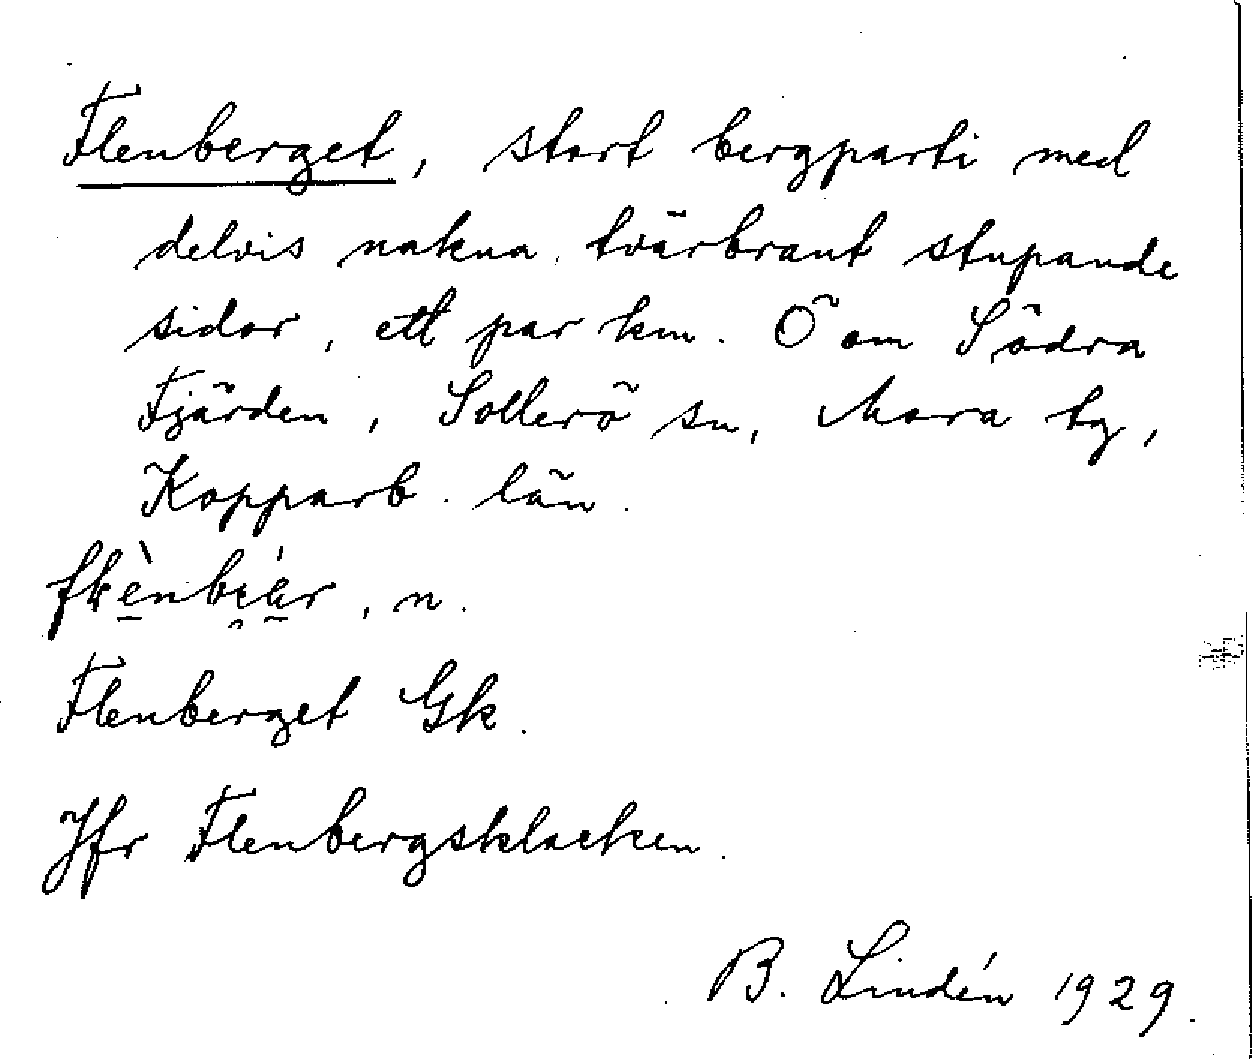 Flenberget, stort bergparti med
delvis nakna, tvärbrant stupande
sidor, ett par km. Ö om Södra
Fjärden, Sollerö sn, Mora tg,
Kopparb. län.
, n.
Flenberget Gk.
Jfr Flenbergsklacken.
B. Lindén 1929.